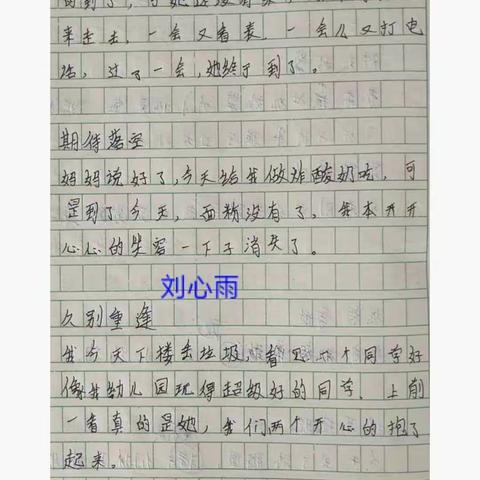 来走去,一会又看表,一会儿又打电
话,过了一会,她终于到了。
期待落空
妈妈说好了,今天给我做炸酸奶吃,可
是到了今天,面粉没有了,我本开开
心心的笑容一下子消失了。
刘心雨
久别重逢
我今天下楼丢垃圾,看见一个同学好
像我幼儿园玩得超级好的同学,上前
一看真的是她,我们两个开心的抱了
起来。